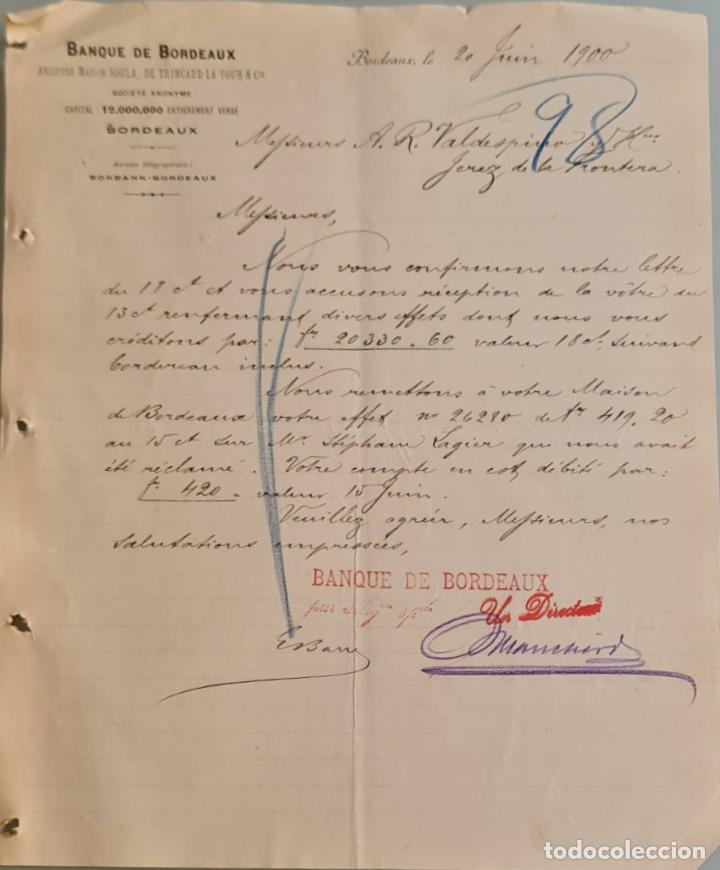 BANQUE DE BORDEAUX
ANCIENNE MAISON SOULA, DE TRINCAUD LA TOUR & Cie
SOCIÉTÉ ANONYME
CAPITAL : 12,000,000 ENTIÈREMENT VERSÉ
BORDEAUX
Adresse télégraphique :
BORBANK-BORDEAUX
Bordeaux, le 20 Juin 1900
98
Messieurs A. R. Valdespino y Hno
Jerez de la Frontera.
Messieurs,
Nous vous confirmons notre lettre
du 18 ct et vous accusons réception de la vôtre du
13 ct renfermant divers effets dont nous vous
créditons par: fr 20330.60 valeur 18 ct, suivant
bordereau inclus.
Nous remettons à votre Maison
de Bordeaux votre effet no 26280 de fr 419.20
au 15 ct sur Mr Stéphane Lagier qui nous avait
été réclamé. Votre compte en est débité par:
f. 420 - valeur 15 Juin.
Veuillez agréer, Messieurs, nos
salutations empressées,
BANQUE DE BORDEAUX
Un Directeur
todocoleccion.net